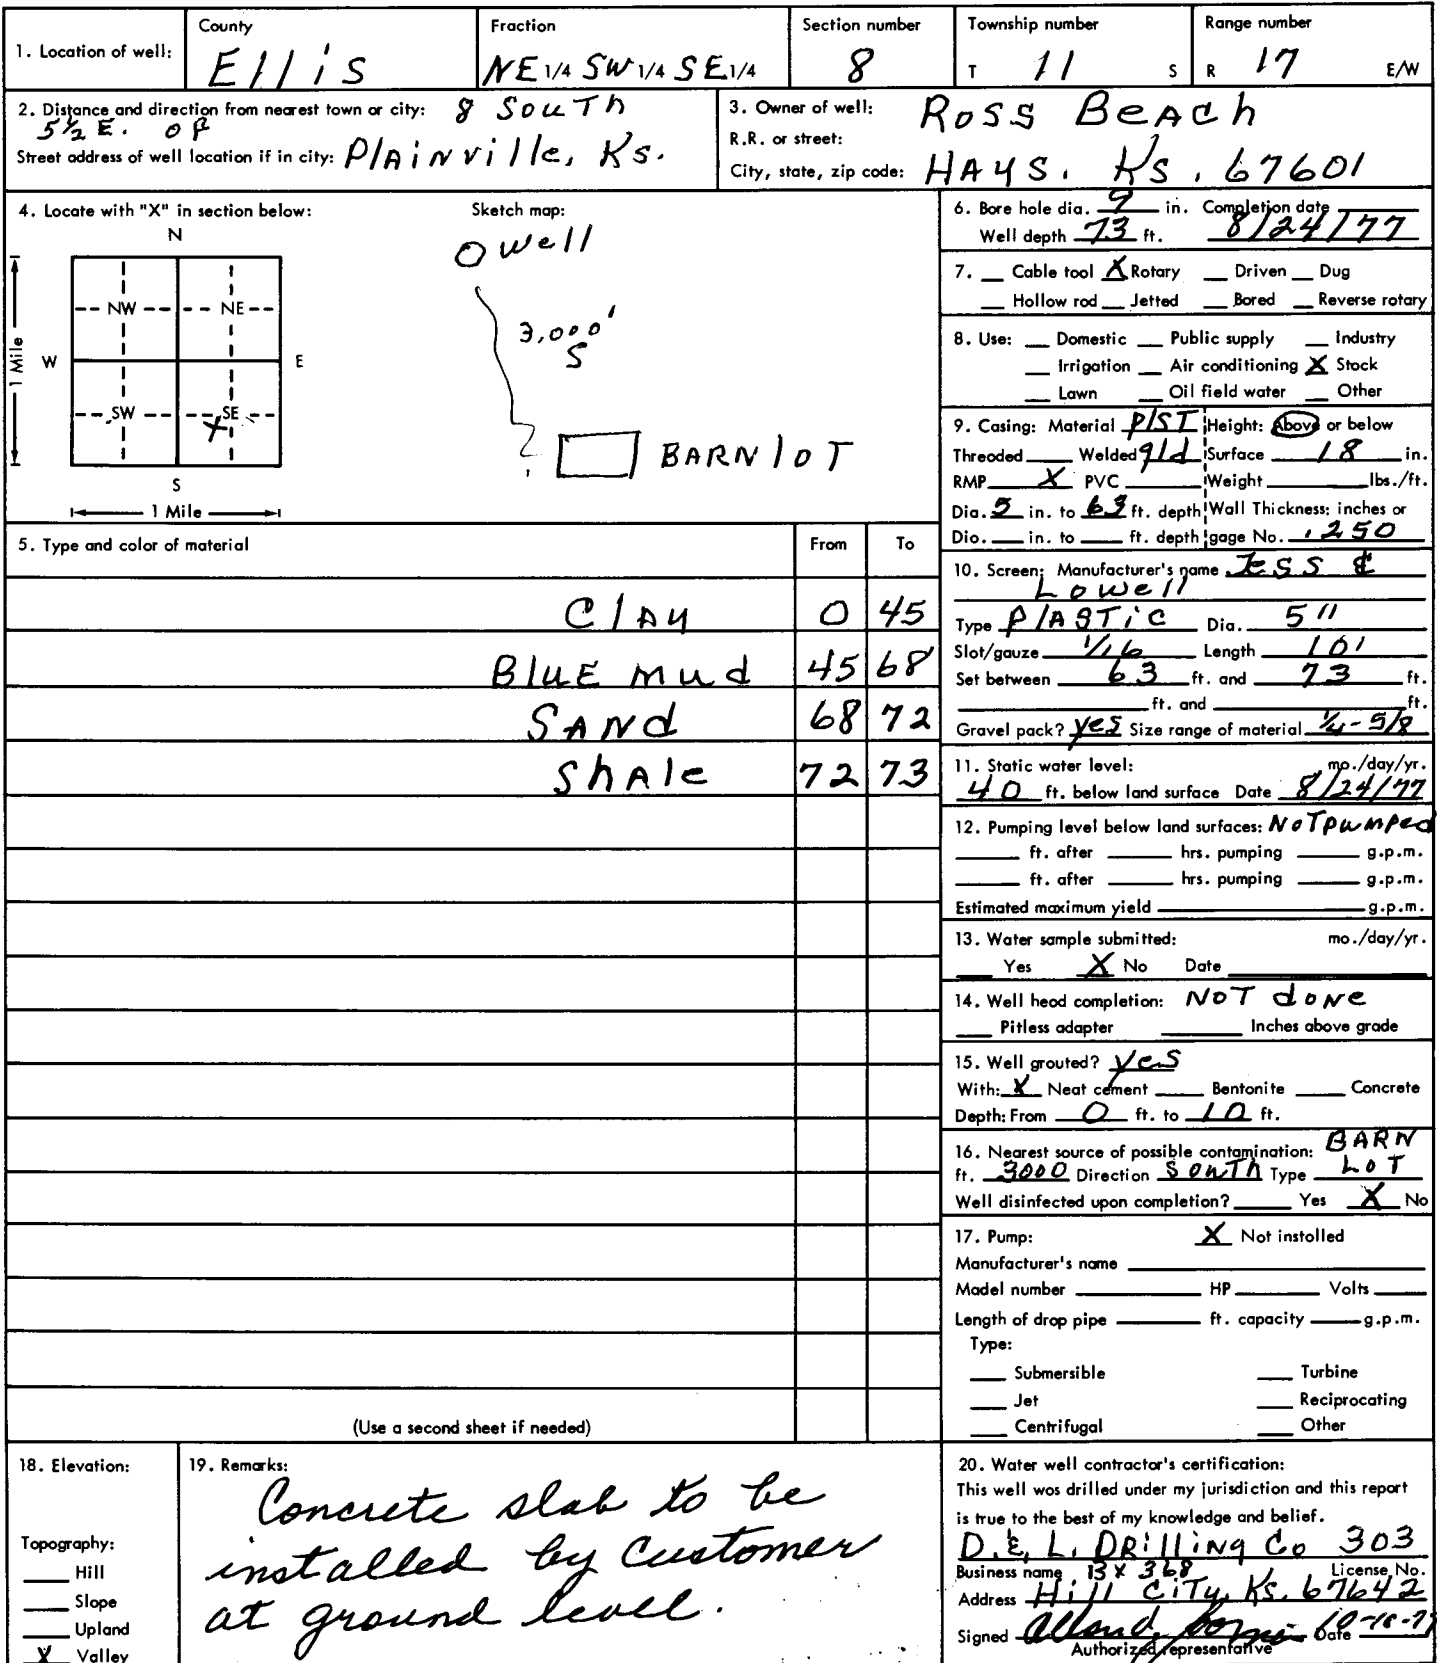 1. Location of well:
County
Ellis
Fraction
NE 1/4 SW 1/4 SE 1/4
Section number
8
Township number
T 11 S
Range number
R 17 E/W
2. Distance and direction from nearest town or city: 8 South
5½ E. of
Street address of well location if in city: Plainville, Ks.
3. Owner of well: Ross Beach
R.R. or street:
City, state, zip code: Hays, Ks. 67601
4. Locate with "X" in section below:
N
NW NE
W E
SW X SE
S
1 Mile
1 Mile
Sketch map:
O Well
3,000'
S
BARN LOT
5. Type and color of material From To
Clay 0 45
Blue mud 45 68
Sand 68 72
Shale 72 73
(Use a second sheet if needed)
6. Bore hole dia. 9 in. Completion date
Well depth 73 ft. 8/24/77
7. __ Cable tool X Rotary __ Driven __ Dug
__ Hollow rod __ Jetted __ Bored __ Reverse rotary
8. Use: __ Domestic __ Public supply __ Industry
__ Irrigation __ Air conditioning X Stock
__ Lawn __ Oil field water __ Other
9. Casing: Material PlST Height: Above or below
Threaded __ Welded gld Surface 18 in.
RMP X PVC __ Weight __ lbs./ft.
Dia. 5 in. to 63 ft. depth Wall Thickness: inches or
Dia. __ in. to __ ft. depth gage No. .250
10. Screen: Manufacturer's name Jess &
Lowell
Type Plastic Dia. 5"
Slot/gauze 1/16 Length 10'
Set between 63 ft. and 73 ft.
__ ft. and __ ft.
Gravel pack? yes Size range of material 1/4 - 5/8
11. Static water level: mo./day/yr.
40 ft. below land surface Date 8/24/77
12. Pumping level below land surfaces: Not pumped
__ ft. after __ hrs. pumping __ g.p.m.
__ ft. after __ hrs. pumping __ g.p.m.
Estimated maximum yield __ g.p.m.
13. Water sample submitted: mo./day/yr.
__ Yes X No Date __
14. Well head completion: Not done
__ Pitless adapter __ Inches above grade
15. Well grouted? yes
With: X Neat cement __ Bentonite __ Concrete
Depth: From 0 ft. to 10 ft.
16. Nearest source of possible contamination: BARN
ft. 3000 Direction South Type LOT
Well disinfected upon completion? __ Yes X No
17. Pump: X Not installed
Manufacturer's name __
Model number __ HP __ Volts __
Length of drop pipe __ ft. capacity __ g.p.m.
Type:
__ Submersible __ Turbine
__ Jet __ Reciprocating
__ Centrifugal __ Other
18. Elevation:
Topography:
__ Hill
__ Slope
__ Upland
X Valley
19. Remarks:
Concrete slab to be
installed by Customer
at ground level.
20. Water well contractor's certification:
This well was drilled under my jurisdiction and this report
is true to the best of my knowledge and belief.
D. & L. Drilling Co 303
Business name Bx 368 License No.
Address Hill City, Ks. 67642
Signed Date
Authorized representative